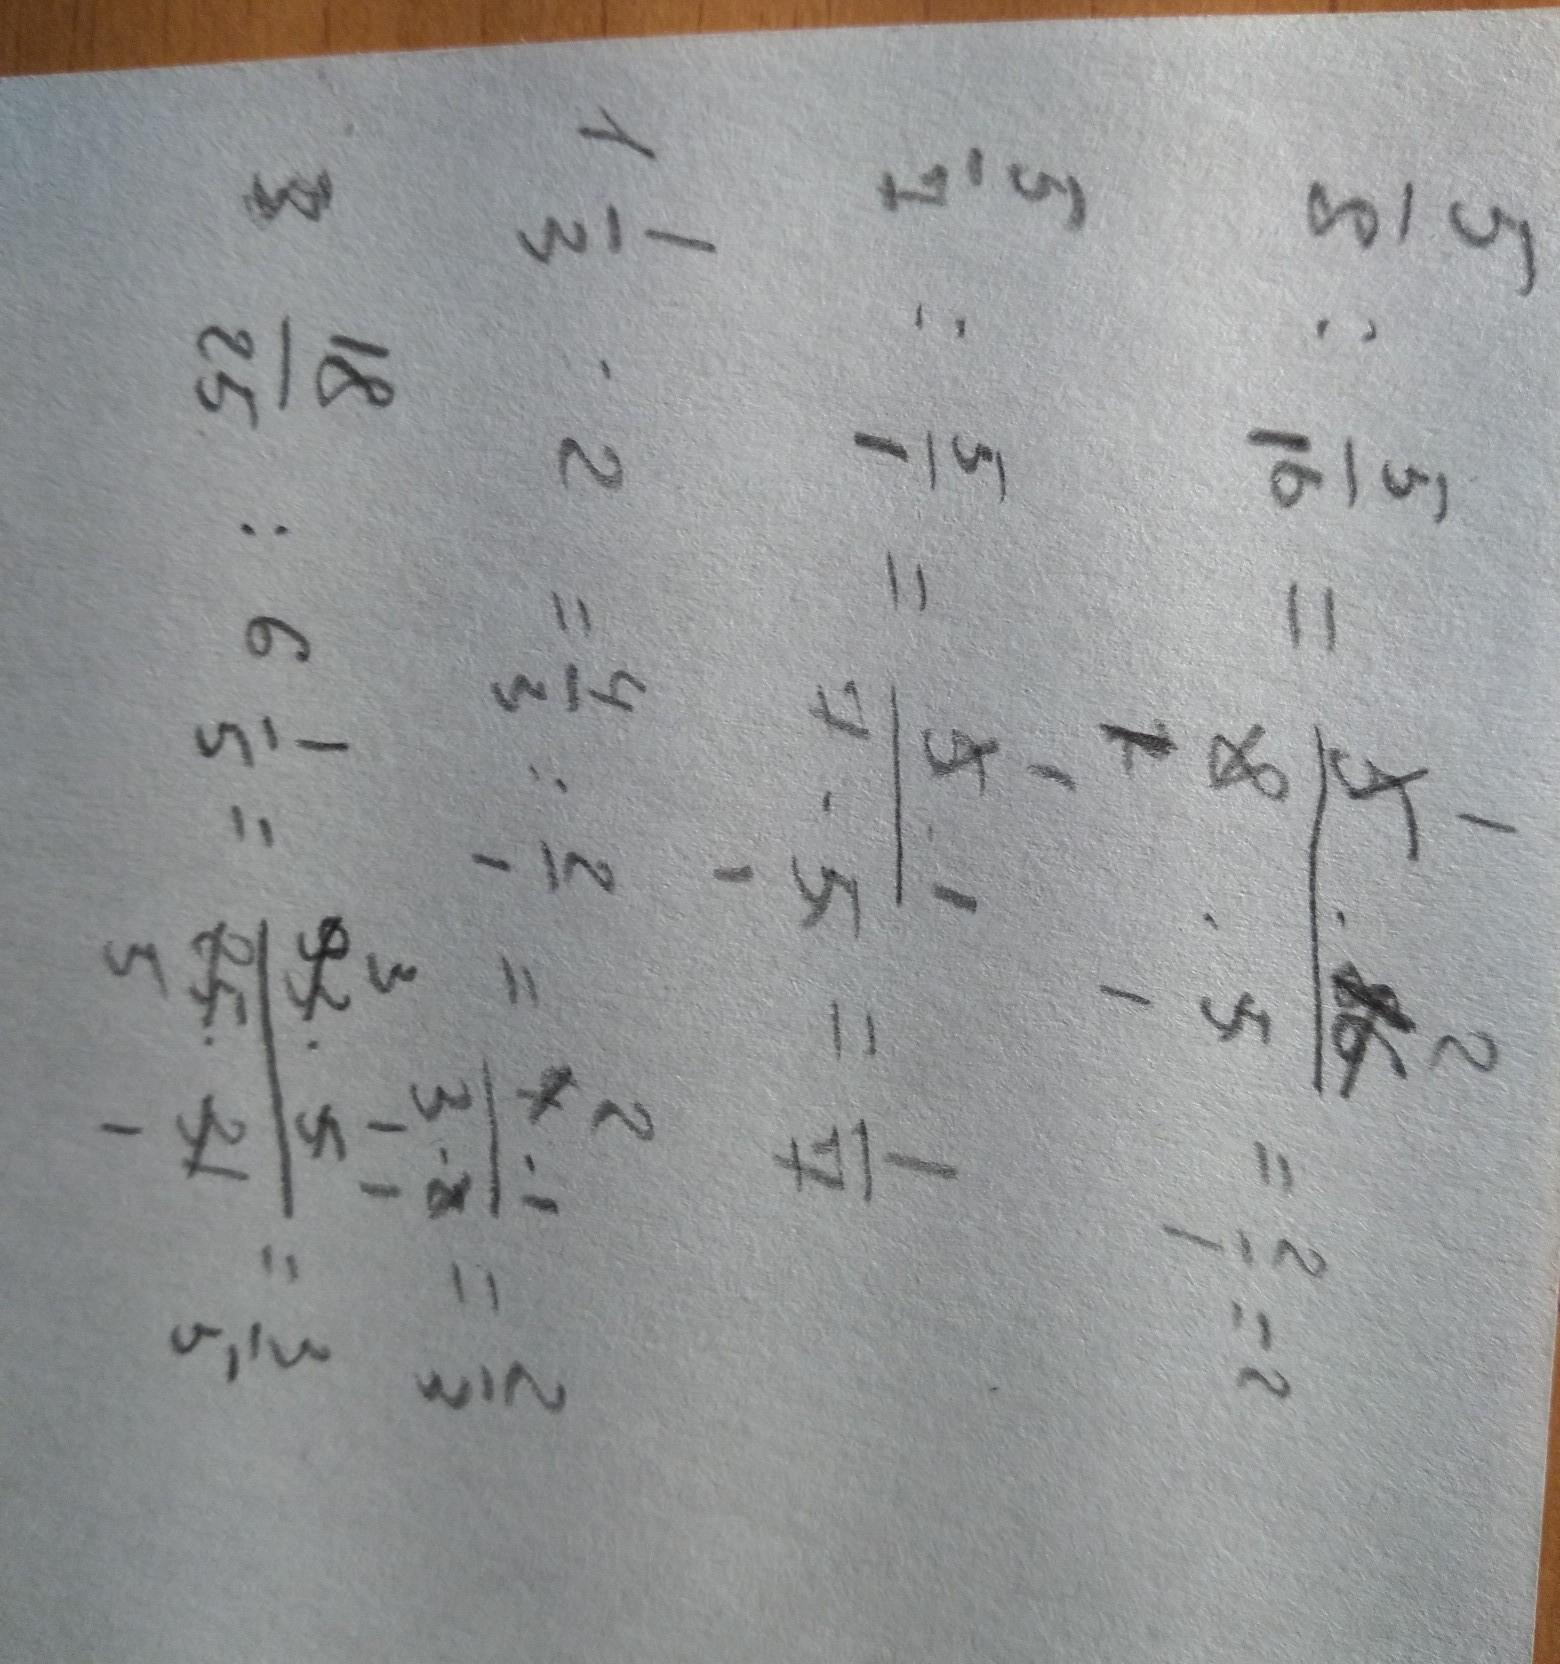 5/8 : 5/16 = 5 1 · 16 2 / 8 1 · 5 1 = 2/1 = 2
5/7 : 5/1 = 5 1 · 1 / 7 · 5 1 = 1/7
1 1/3 · 2 = 4/3 : 2/1 = 4 2 · 1 / 3 · 2 1 = 2/3
3 18/25 : 6 1/5 = 93 3 · 5 1 / 25 5 · 31 1 = 3/5